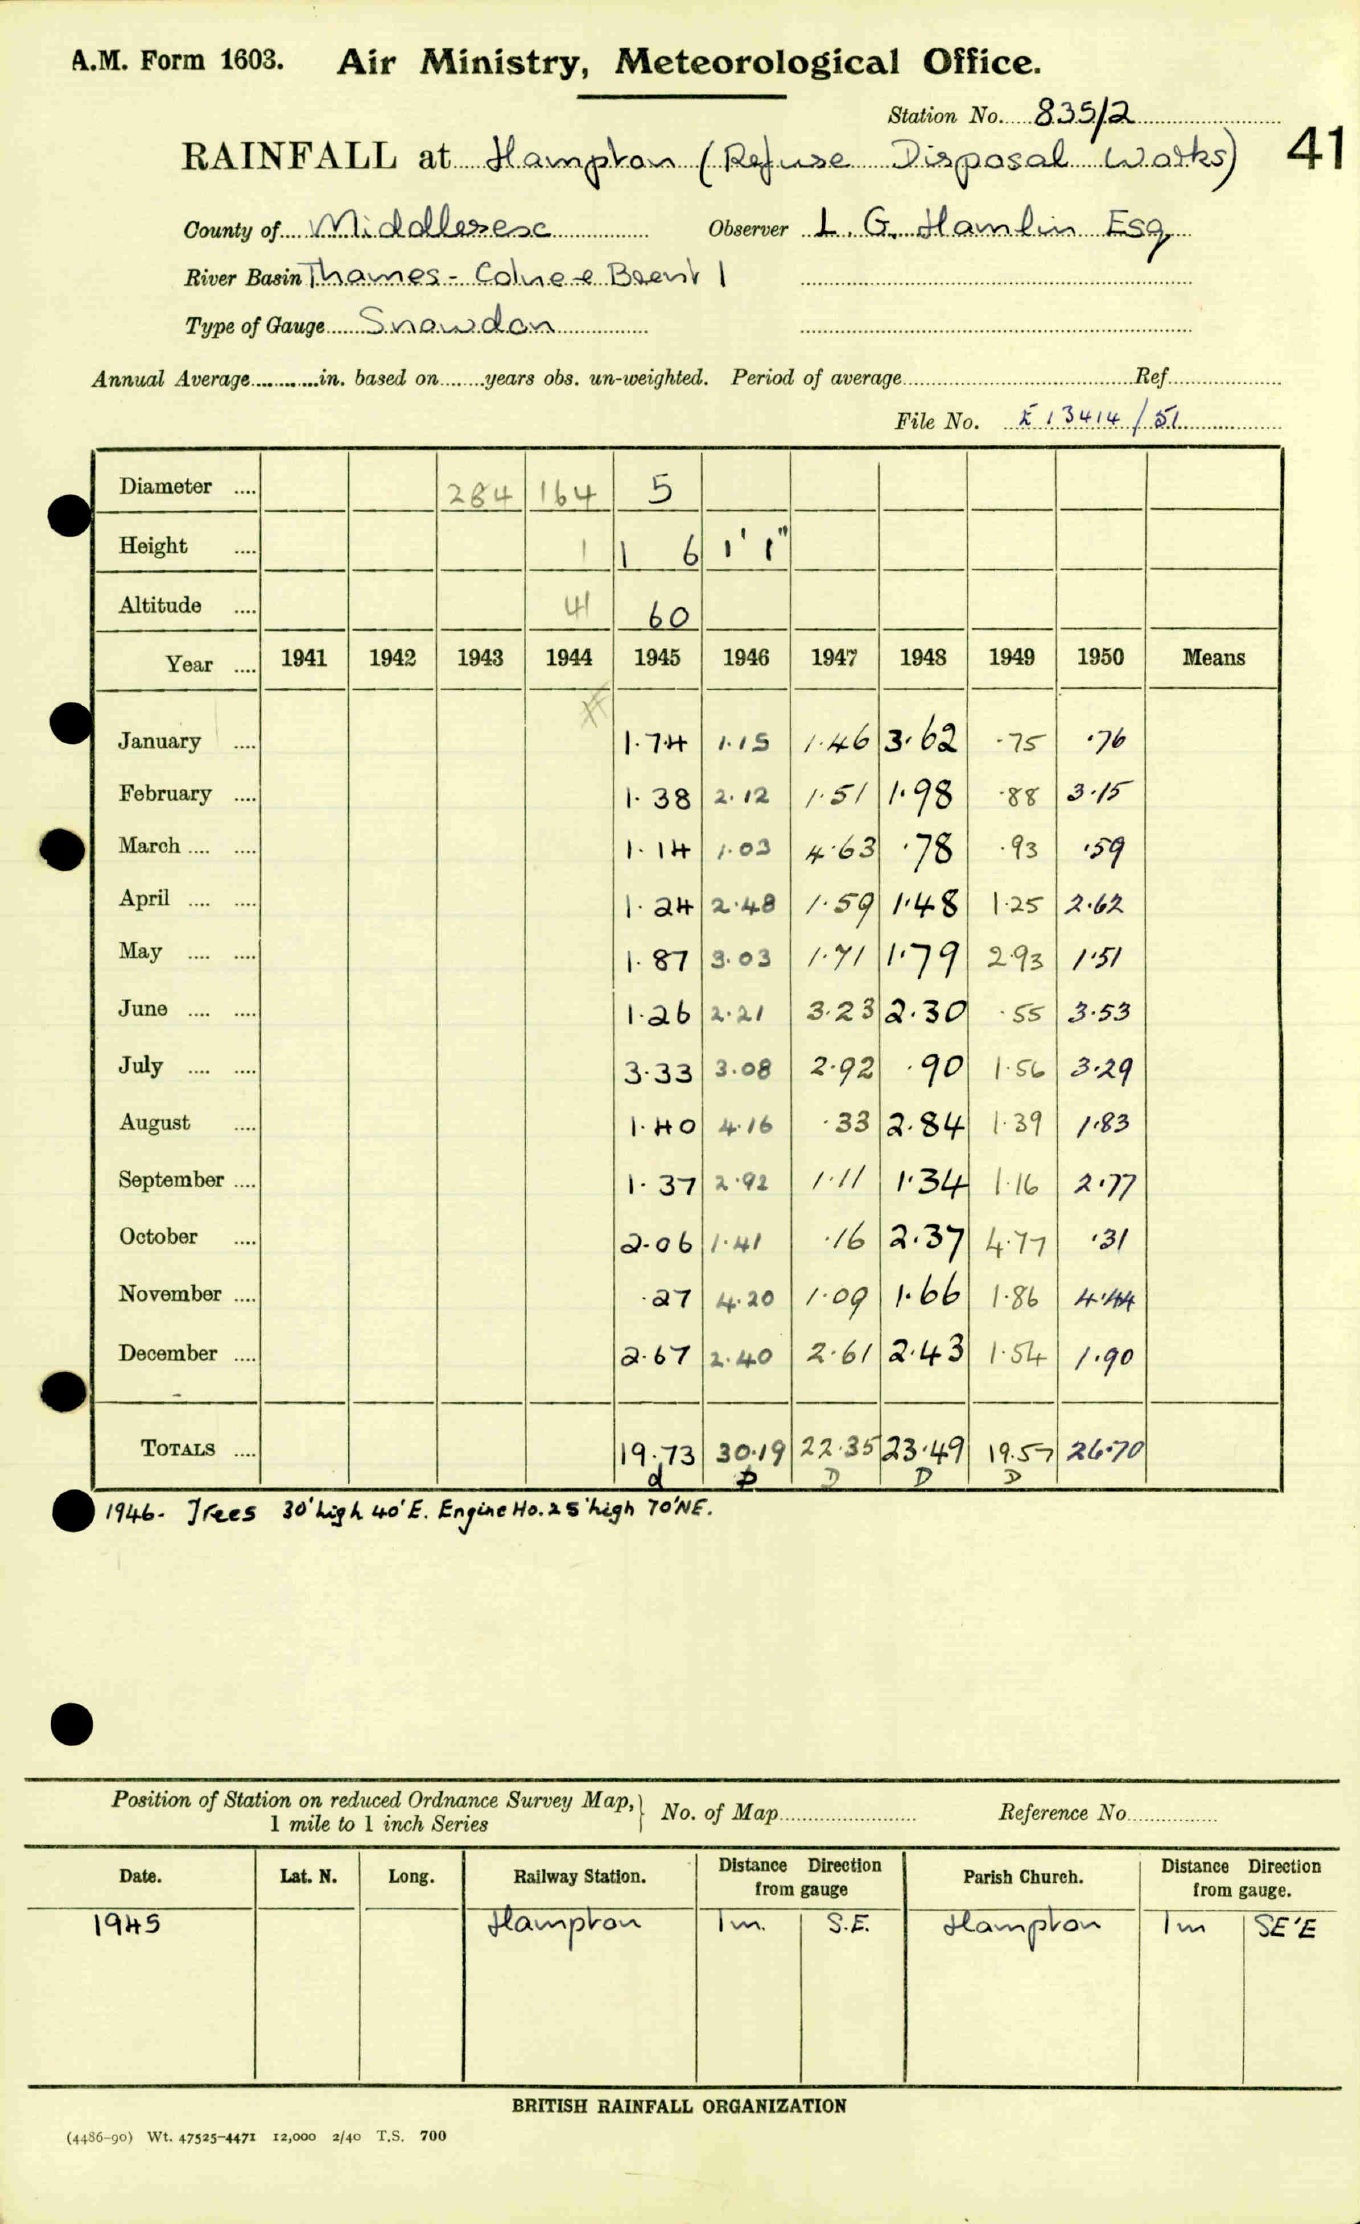 A.M. Form 1603. Air Ministry, Meteorological Office.
Station No. 835/2
41
RAINFALL at Hampton (Refuse Disposal Works)
County of Middlesex Observer L. G. Hamlin Esq
River Basin Thames - Colne & Brent 1
Type of Gauge Snowdon
Annual Average in. based on years obs. un-weighted. Period of average Ref.
File No. E 13414/51
Diameter 284 164 5
Height 1 1 6 1' 1"
Altitude 41 60
Year 1941 1942 1943 1944 1945 1946 1947 1948 1949 1950 Means
January 1.74 1.15 1.46 3.62 .75 .76
February 1.38 2.12 1.51 1.98 .88 3.15
March 1.14 1.03 4.63 .78 .93 .59
April 1.24 2.48 1.59 1.48 1.25 2.62
May 1.87 3.03 1.71 1.79 2.93 1.51
June 1.26 2.21 3.23 2.30 .55 3.53
July 3.33 3.08 2.92 .90 1.56 3.29
August 1.40 4.16 .33 2.84 1.39 1.83
September 1.37 2.92 1.11 1.34 1.16 2.77
October 2.06 1.41 .16 2.37 4.77 .31
November .27 4.20 1.09 1.66 1.86 4.44
December 2.67 2.40 2.61 2.43 1.54 1.90
TOTALS 19.73 30.19 22.35 23.49 19.57 26.70
d D D D D
1946. Trees 30' high 40' E. Engine Ho. 25' high 70' NE.
Position of Station on reduced Ordnance Survey Map, No. of Map Reference No.
1 mile to 1 inch Series
Date. Lat. N. Long. Railway Station. Distance Direction from gauge Parish Church. Distance Direction from gauge.
1945 Hampton 1m. S.E. Hampton 1m SE'E
BRITISH RAINFALL ORGANIZATION
(4486-90) Wt. 47525-4471 12,000 2/40 T.S. 700